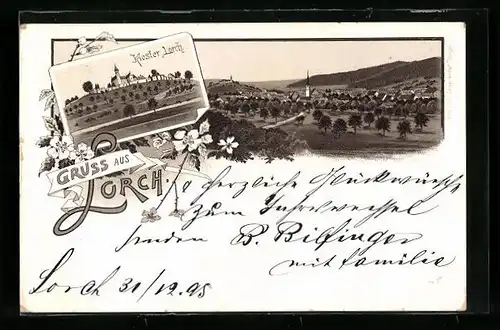 Kloster Lorch.
GRUSS AUS
LORCH.
herzliche Glückwünsche
zum Jahreswechsel
senden B. Bilfinger
mit Familie
Lorch 31/12.95